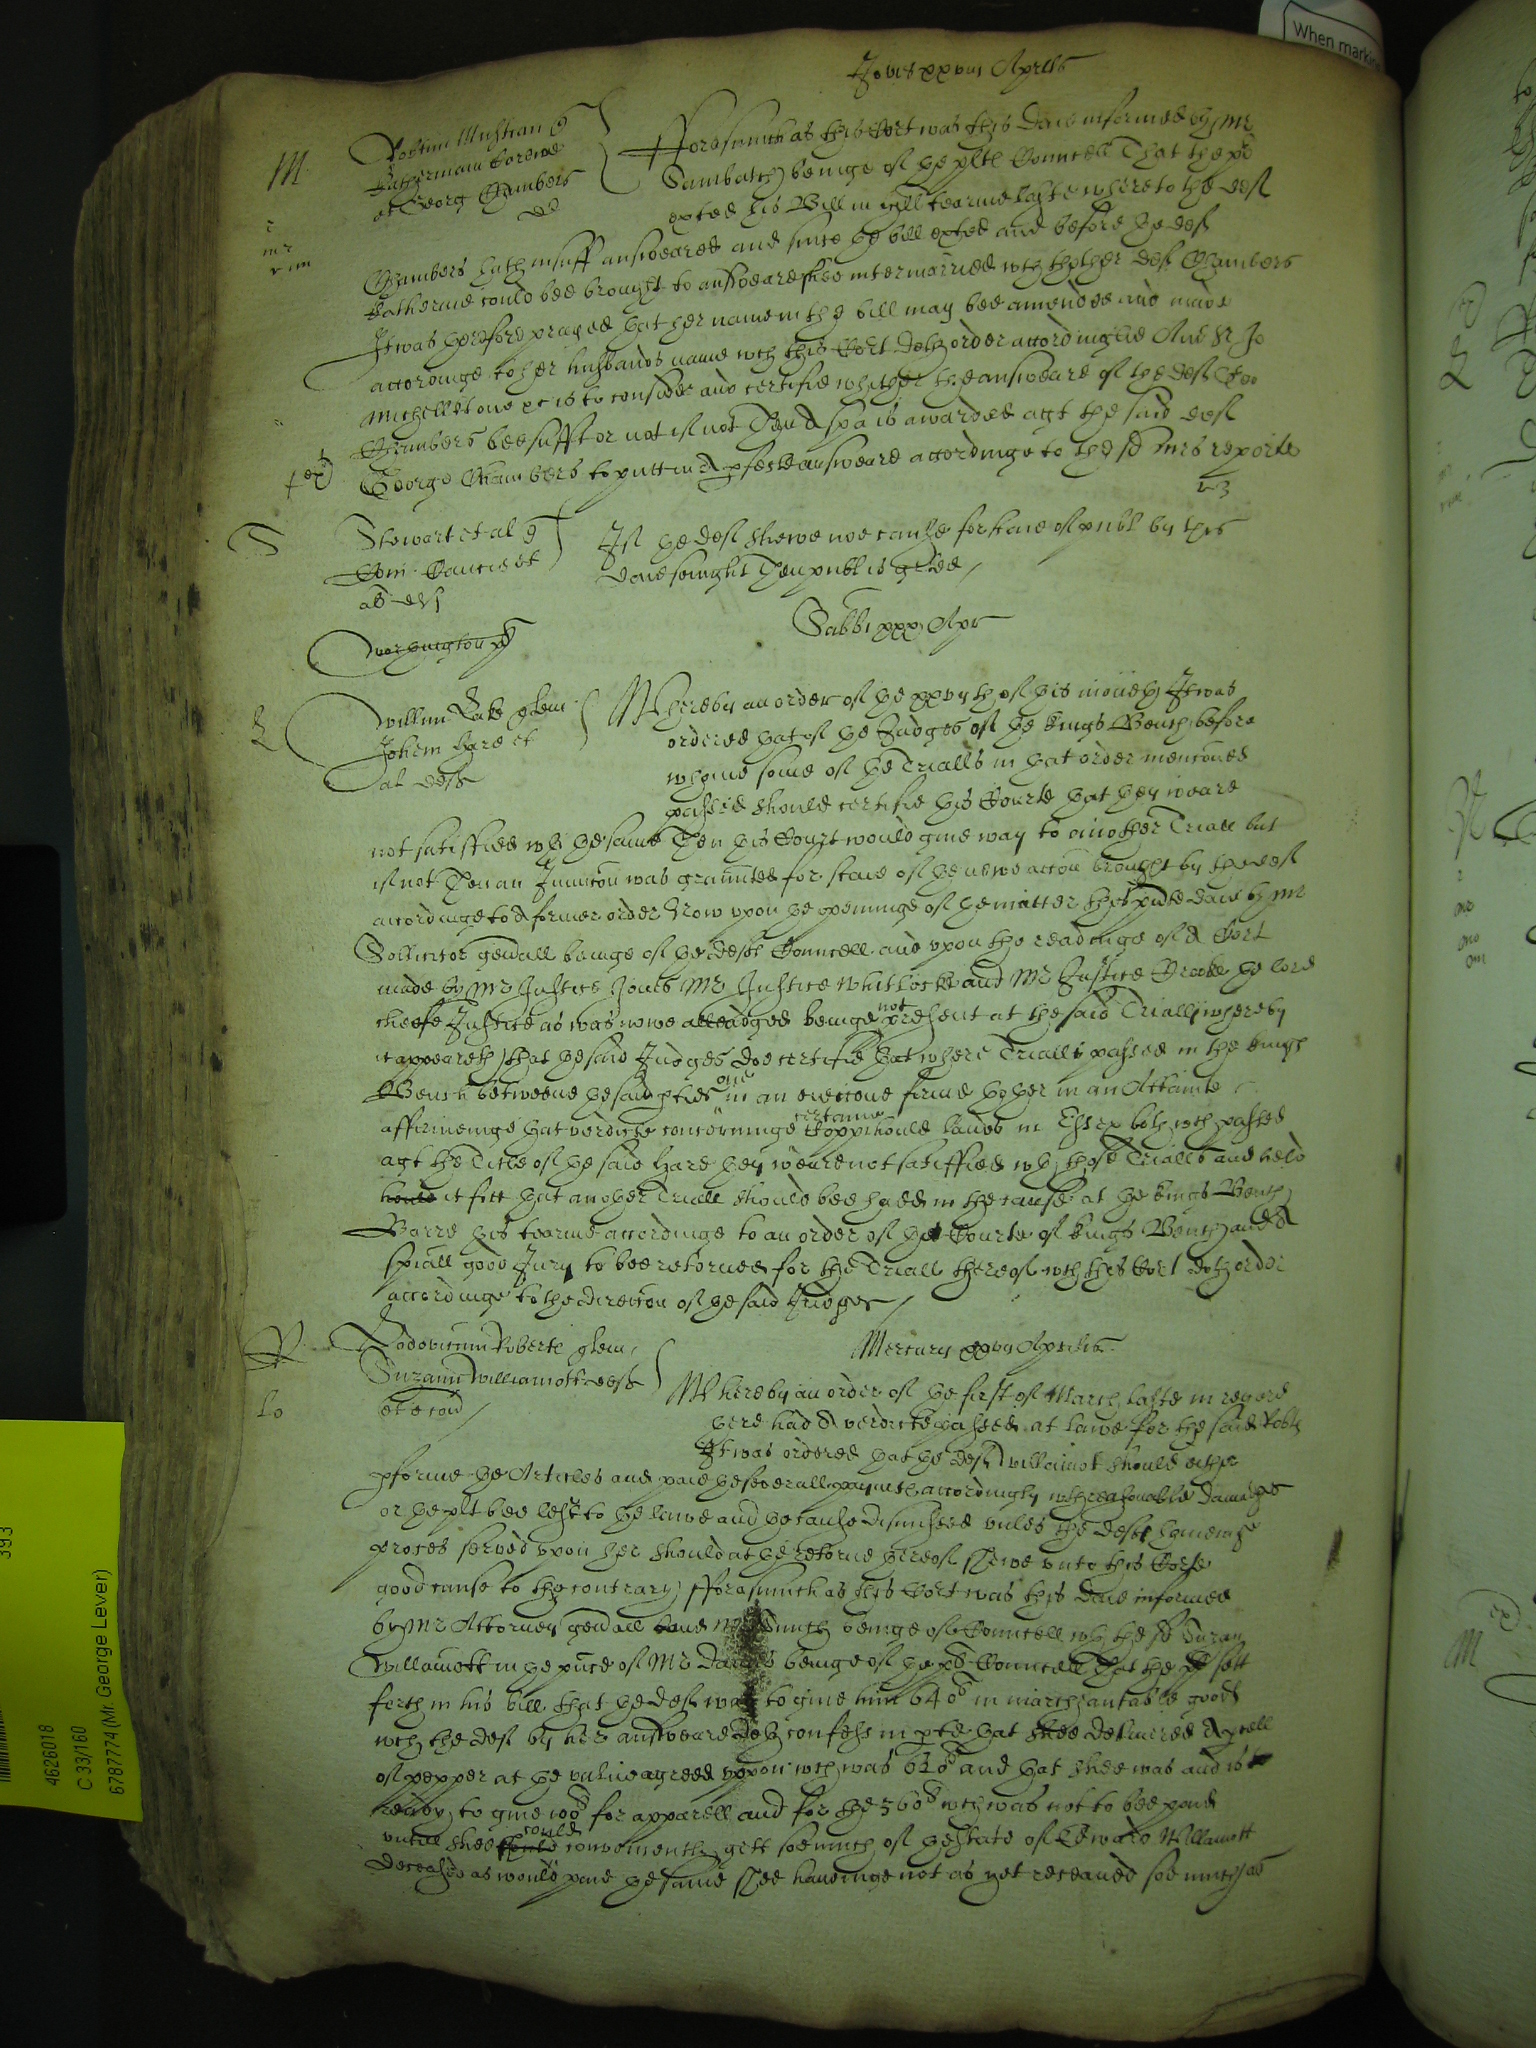 When markin
Jovis xxviii Aprilis
M
Robtm Mushan q
Katherinam Careine
et Georg Chambers
dd
Forasmuch as this Cort was this daie informed by Mr
Sambatch beinge of the plts Councell That the plt
exted his Bill in Hill tearme laste whereto the deft
Chambers hath insuff answeared and since the bill exted and before the deft
Katherine could bee brought to answeare shee intermarried wth thother deft Chambers
It was therefore prayed that her name in the bill may bee amended and made
accordinge to her husbands name wch this Cort doth order accordinglie And Sr Jo
Michell is to consider and certifie whether the answeare of the deft Geo
Chambers bee suff or not if not Then A spa is awarded agt the said deft
George Chambers to putt in A pfecte answeare accordinge to the sd Mrs reporte
S
Stewart et al q
Com et
al def
If the deft shewe noe cause for staie of publ by this
daie sevnight Then publ is grted
Sabbi xxx Apr
L
Willm Lake quer
Johem Hare et
al defts
Whereby an order of the xxvth of this moneth It was
ordered that if the Judges of the Kings Bench before
whome some of the Trialls in that order mencioned
passed should certifie this Courte that they weare
not satisfied wth the same Then this Court would give way to another Triall but
if not Then an Iniuncon was graunted for staie of the newe accon brought by the deft
accordinge to A former order Now upon the openinge of the matter this pnte daie by Mr
Sollicitor genall beinge of the defts Councell and upon the readinge of A Cert
made by Mr Justice Jones Mr Justice Whitlocke and Mr Justice Crooke the lord
cheefe Justice as was nowe alleadged beinge not present at the said Triall whereby
it appeareth that the said Judges doe certifie that where Trialls passed in the Kings
Bench betweene the said pties one in an eieccone firme thother in an Attainte
affirmeinge that verdicte concerninge certaine Coppihould lands in Essex both wch passed
agt the Title of the said Hare they weare not satisfied wth those Trialls and held
it fitt that another Triall should bee hadd in the cause at the Kings Bench
Barre this tearme accordinge to an order of the Courte of Kings Bench and A
spiall good Jury to bee retorned for the Triall thereof wch this Cort doth order
accordinge to the direccon of the said Judges
R
Lo
Lodovicum Roberts quer
Suzann Williamott defts
et econ
Mercurij xxvij Aprilis
Whereby an order of the first of March laste in regard
there had A verdicte passed at lawe for the said Robts
It was ordered that the deft Willamot should either
pforme the Articles and paie the severall paymts accordingly wth reasonable damages
or the plt bee lefte to the lawe and the cause dismissed unles the deft haveinge
proces served upon her should at the retorne thereof shewe unto this Corte
good cause to the contrary Forasmuch as this Cort was this daie informed
by Mr Attorney genall and beinge of Councell wth the sd Suzan
Willamott in the pnce of Mr beinge of the plts Councell That the plt sett
forth in his bill that the deft was to give him 640l in marchantable goods
wch the deft by her answeare doth confess in pte that shee delivered A pcell
of pepper at the value agreed uppon wch was and that shee was and is
ready to give 100l for apparell and for the 560l wch was not to bee paid
untill shee could conveniently gett soe much of the state of Edward Willamott
deceased as would paie the same Shee haveinge not as yet receaved soe much as
393
4626018
C 33/160
6787774 (Mr. George Lever)